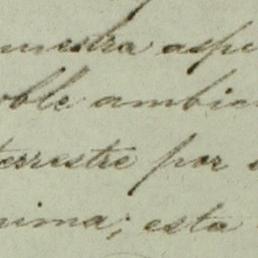 nuestra aspe
oble ambici
terrestre por
nima; esta